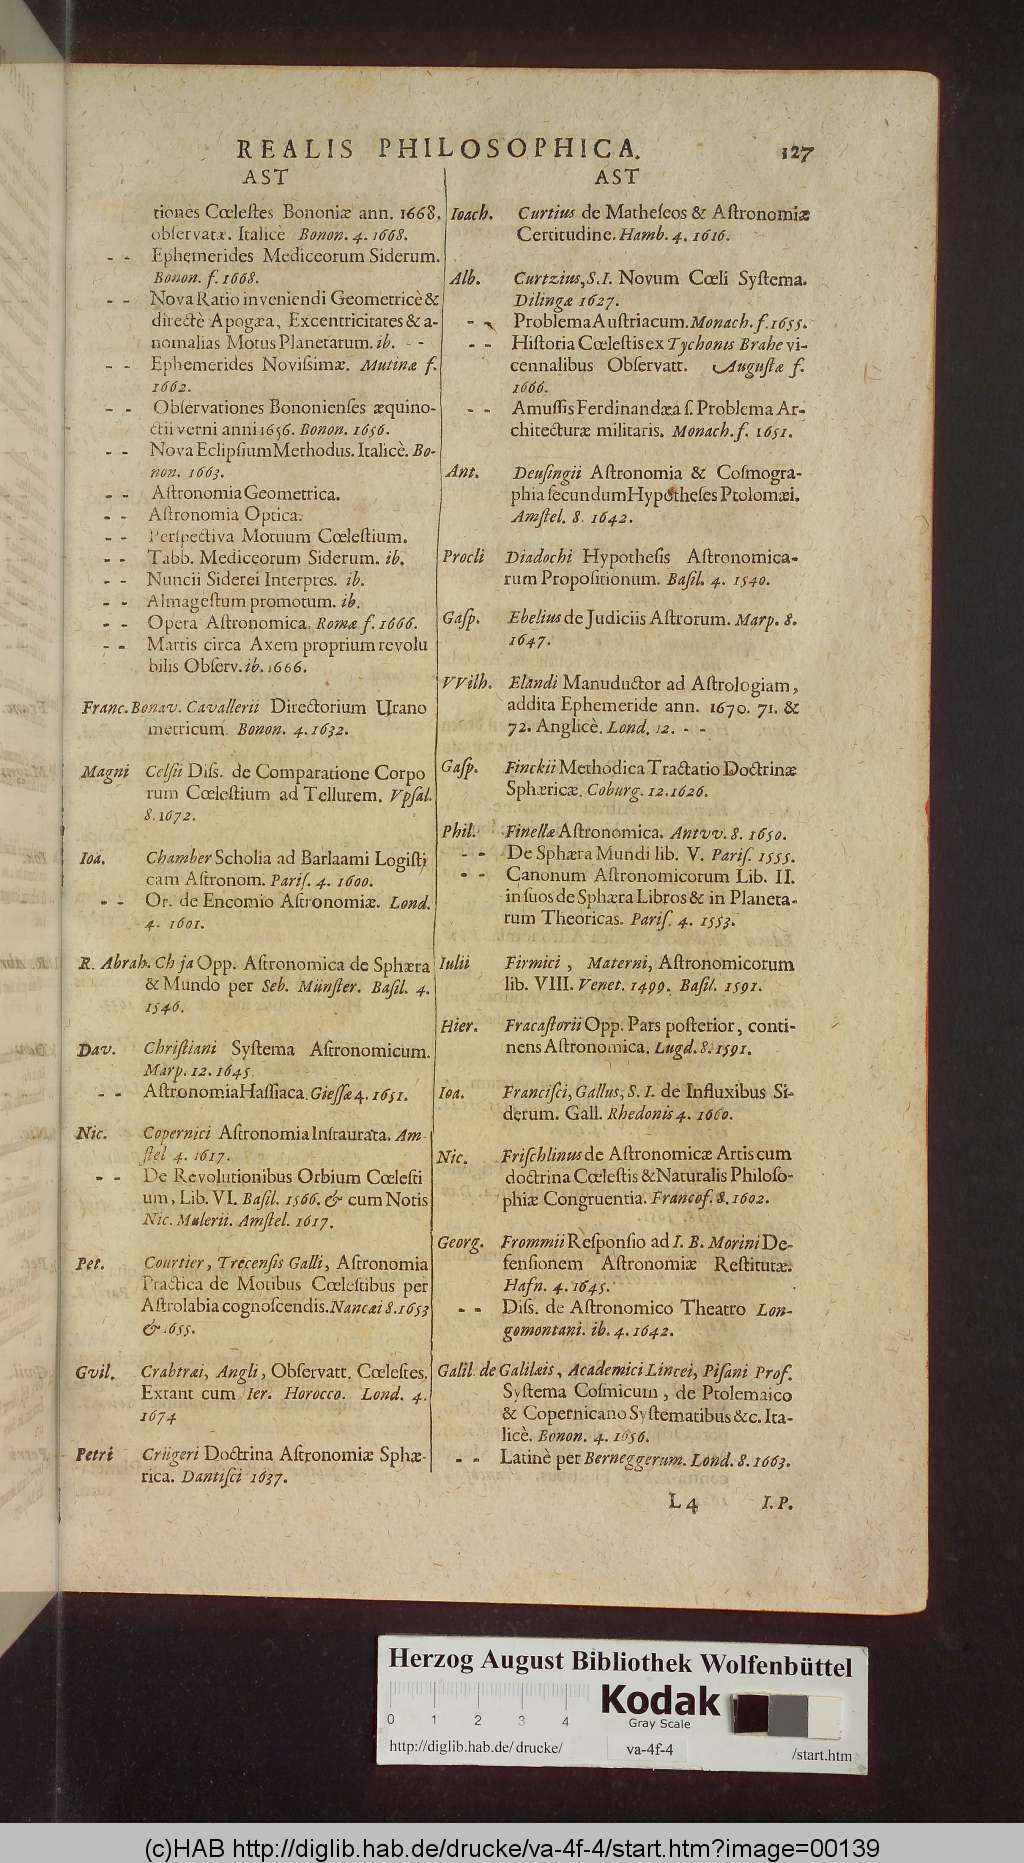 REALIS PHILOSOPHICA.
127
AST
tiones Cœleſtes Bononiæ ann. 1668.
obſervatæ. Italicè Bonon. 4. 1668.
- - Ephemerides Mediceorum Siderum.
Bonon. f. 1668.
- - Nova Ratio inveniendi Geometricè &
directè Apogæa, Excentricitates & a-
nomalias Motus Planetarum. ib. - -
- - Ephemerides Noviſſimæ. Mutinæ f.
1662.
- - Obſervationes Bononienſes æquino-
ctii verni anni 1656. Bonon. 1656.
- - Nova Eclipſium Methodus. Italicè. Bo-
non. 1663.
- - Aſtronomia Geometrica.
- - Aſtronomia Optica.
- - Perſpectiva Motuum Cœleſtium.
- - Tabb. Mediceorum Siderum. ib.
- - Nuncii Siderei Interpres. ib.
- - Almageſtum promotum. ib.
- - Opera Aſtronomica. Romæ f. 1666.
- - Martis circa Axem proprium revolu
bilis Obſerv. ib. 1666.
Franc. Bonav. Cavallerii Directorium Urano
metricum. Bonon. 4. 1632.
Magni Celſii Diſs. de Comparatione Corpo
rum Cœleſtium ad Tellurem. Vpſal.
8. 1672.
Ioa. Chamber Scholia ad Barlaami Logiſti
cam Aſtronom. Pariſ. 4. 1600.
- - Or. de Encomio Aſtronomiæ. Lond.
4. 1601.
R. Abrah. Ch ja Opp. Aſtronomica de Sphæra
& Mundo per Seb. Münſter. Baſil. 4.
1546.
Dav. Chriſtiani Syſtema Aſtronomicum.
Marp. 12. 1645.
- - Aſtronomia Haſſiaca. Gieſſæ 4. 1651.
Nic. Copernici Aſtronomia Inſtaurata. Am-
ſtel 4. 1617.
- - De Revolutionibus Orbium Cœleſti
um, Lib. VI. Baſil. 1566. & cum Notis
Nic. Mulerii. Amſtel. 1617.
Pet. Courtier, Trecenſis Galli, Aſtronomia
Practica de Motibus Cœleſtibus per
Aſtrolabia cognoſcendis. Nancæi 8. 1653
& 1655.
Gvil. Crabtræi, Angli, Obſervatt. Cœleſtes.
Extant cum Ier. Horocco. Lond. 4.
1674
Petri Crügeri Doctrina Aſtronomiæ Sphæ-
rica. Dantiſci 1637.
AST
Ioach. Curtius de Matheſeos & Aſtronomiæ
Certitudine. Hamb. 4. 1616.
Alb. Curtzius, S. I. Novum Cœli Syſtema.
Dilingæ 1627.
- - Problema Auſtriacum. Monach. f. 1655.
- - Hiſtoria Cœleſtis ex Tychonis Brahe vi-
cennalibus Obſervatt. Auguſtæ f.
1666.
- - Amuſſis Ferdinandæa ſ. Problema Ar-
chitecturæ militaris. Monach. f. 1651.
Ant. Deuſingii Aſtronomia & Coſmogra-
phia ſecundum Hypotheſes Ptolomæi.
Amſtel. 8. 1642.
Procli Diadochi Hypotheſis Aſtronomica-
rum Propoſitionum. Baſil. 4. 1540.
Gaſp. Ebelius de Judiciis Aſtrorum. Marp. 8.
1647.
VVilh. Elandi Manuductor ad Aſtrologiam,
addita Ephemeride ann. 1670. 71. &
72. Anglicè. Lond. 12. - -
Gaſp. Finckii Methodica Tractatio Doctrinæ
Sphæricæ. Coburg. 12. 1626.
Phil. Finellæ Aſtronomica. Antvv. 8. 1650.
- - De Sphæra Mundi lib. V. Pariſ. 1555.
- - Canonum Aſtronomicorum Lib. II.
in ſuos de Sphæra Libros & in Planeta-
rum Theoricas. Pariſ. 4. 1553.
Iulii Firmici, Materni, Aſtronomicorum
lib. VIII. Venet. 1499. Baſil. 1591.
Hier. Fracaſtorii Opp. Pars poſterior, conti-
nens Aſtronomica. Lugd. 8. 1591.
Ioa. Franciſci, Gallus, S. I. de Influxibus Si-
derum. Gall. Rhedonis 4. 1660.
Nic. Friſchlinus de Aſtronomicæ Artis cum
doctrina Cœleſtis & Naturalis Philoſo-
phiæ Congruentia. Francof. 8. 1602.
Georg. Frommii Reſponſio ad I. B. Morini De-
fenſionem Aſtronomiæ Reſtitutæ.
Hafn. 4. 1645.
- - Diſs. de Aſtronomico Theatro Lon-
gomontani. ib. 4. 1642.
Galil. de Galilæis, Academici Lincei, Piſani Prof.
Syſtema Coſmicum, de Ptolemaico
& Copernicano Syſtematibus &c. Ita-
licè. Bonon. 4. 1656.
- - Latinè per Berneggerum. Lond. 8. 1663.
L 4
I. P.
Herzog August Bibliothek Wolfenbüttel
0 1 2 3 4
Kodak
Gray Scale
http://diglib.hab.de/drucke/
va-4f-4
/start.htm
(c)HAB http://diglib.hab.de/drucke/va-4f-4/start.htm?image=00139